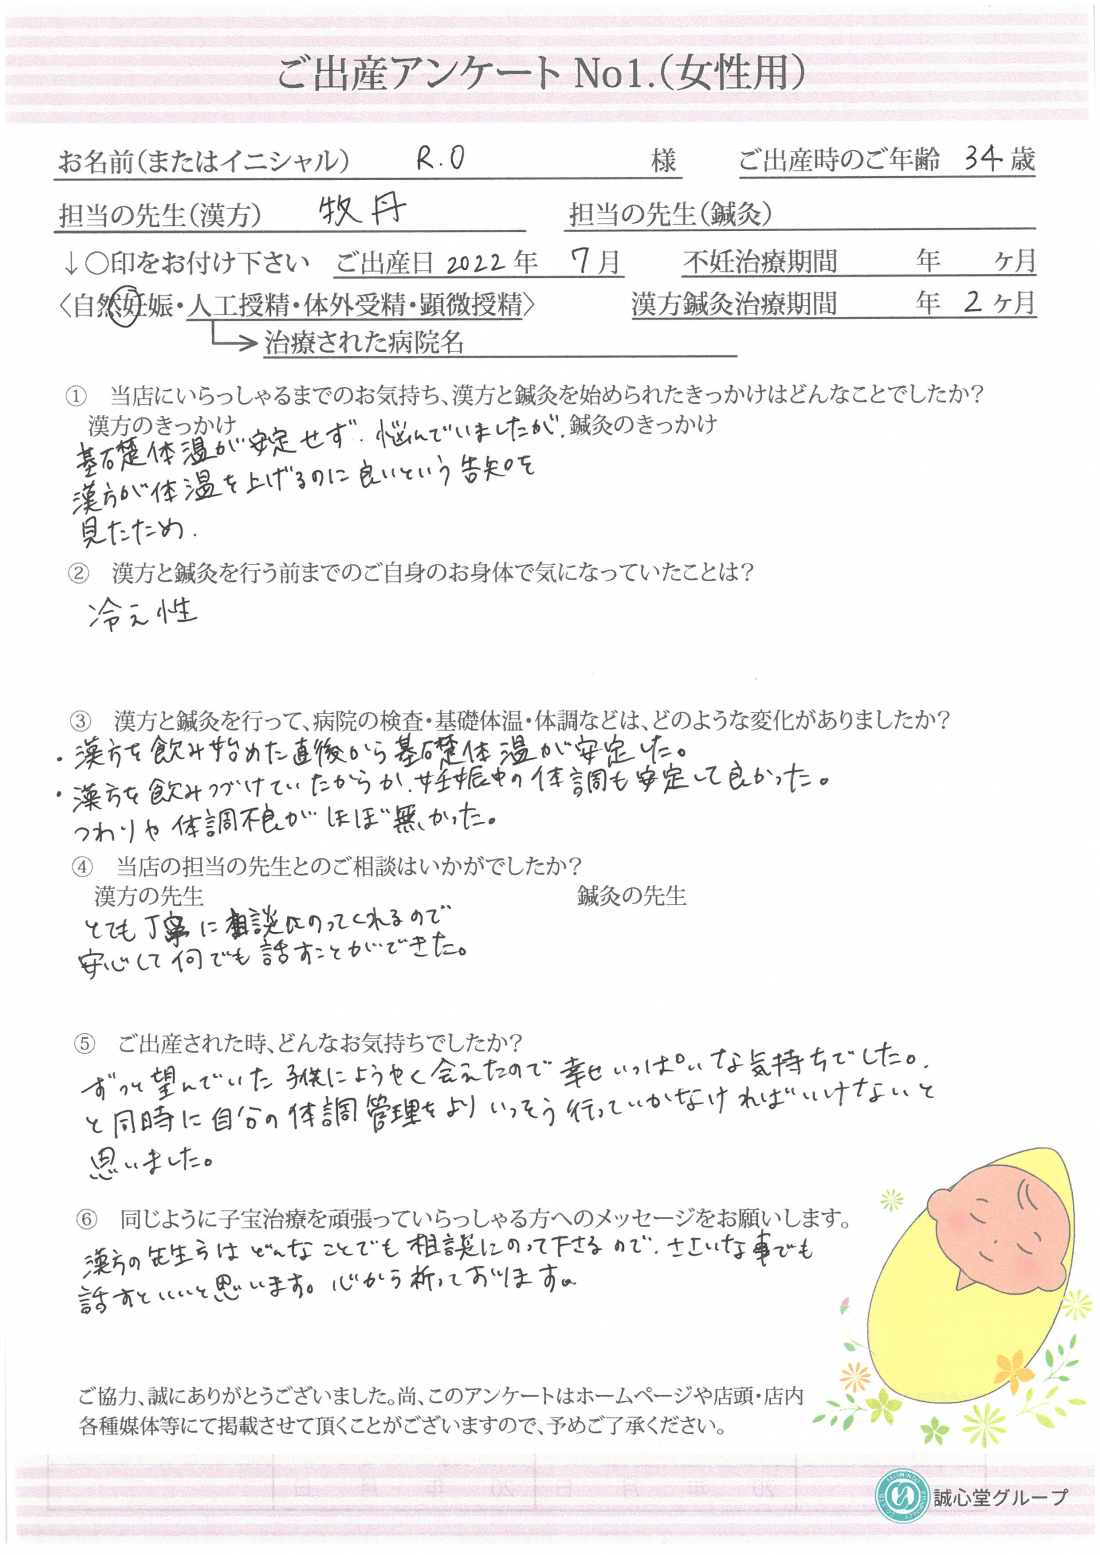 ご出産アンケート No1.(女性用)
お名前(またはイニシャル) R.O 様 ご出産時のご年齢 34 歳
担当の先生(漢方) 牧丹 担当の先生(鍼灸)
↓○印をお付け下さい ご出産日 2022 年 7 月 不妊治療期間 年 ヶ月
〈自然妊娠・人工授精・体外受精・顕微授精〉 漢方鍼灸治療期間 年 2 ヶ月
治療された病院名
① 当店にいらっしゃるまでのお気持ち、漢方と鍼灸を始められたきっかけはどんなことでしたか?
漢方のきっかけ 鍼灸のきっかけ
基礎体温が安定せず、悩んでいましたが、
漢方が体温を上げるのに良いという告知を
見たため.
② 漢方と鍼灸を行う前までのご自身のお身体で気になっていたことは?
冷え性
③ 漢方と鍼灸を行って、病院の検査・基礎体温・体調などは、どのような変化がありましたか?
・漢方を飲み始めた直後から基礎体温が安定した。
・漢方を飲みつづけていたからか、妊娠中の体調も安定して良かった。
つわりや体調不良がほぼ無かった。
④ 当店の担当の先生とのご相談はいかがでしたか?
漢方の先生 鍼灸の先生
とても丁寧に相談にのってくれるので
安心して何でも話すことができた。
⑤ ご出産された時、どんなお気持ちでしたか?
ずっと望んでいた子供にようやく会えたので幸せいっぱいな気持ちでした。
と同時に自分の体調管理をよりいっそう行っていかなければいけないと
思いました。
⑥ 同じように子宝治療を頑張っていらっしゃる方へのメッセージをお願いします。
漢方の先生方はどんなことでも相談にのって下さるので、ささいな事でも
話すといいと思います。心から祈っております。
ご協力、誠にありがとうございました。尚、このアンケートはホームページや店頭・店内
各種媒体等にて掲載させて頂くことがございますので、予めご了承ください。
誠心堂グループ